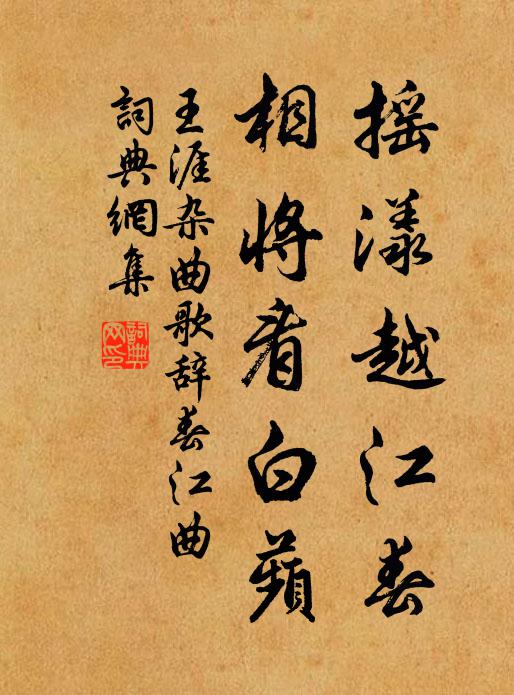 摇漾越江春
相將看白蘋
王涯杂曲歌辞春江曲
詞典網集
詞典网印